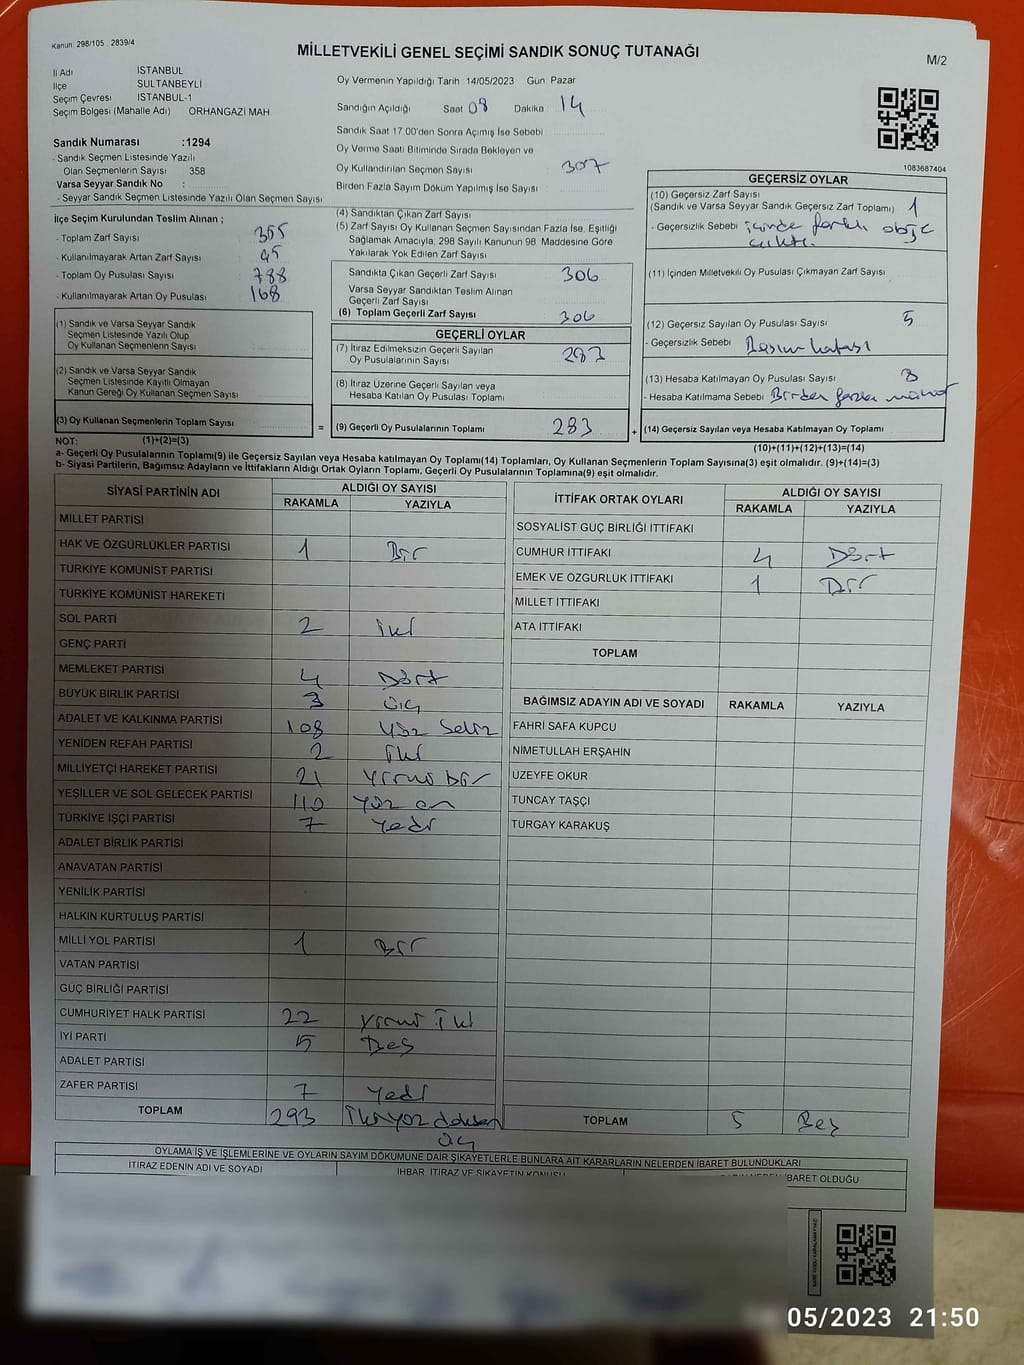 Kanun: 298/105 2839/4
MİLLETVEKİLİ GENEL SEÇİMİ SANDIK SONUÇ TUTANAĞI
M/2
İl Adı İSTANBUL
İlçe SULTANBEYLİ
Seçim Çevresi İSTANBUL-1
Seçim Bölgesi (Mahalle Adı) ORHANGAZİ MAH
Oy Vermenin Yapıldığı Tarih :14/05/2023 Gün: Pazar
Sandığın Açıldığı Saat 08 Dakika 14
Sandık Saat 17:00'den Sonra Açılmış İse Sebebi
Oy Verme Saati Bitiminde Sırada Bekleyen ve
Oy Kullandırılan Seçmen Sayısı 307
Birden Fazla Sayım Döküm Yapılmış İse Sayısı
Sandık Numarası :1294
- Sandık Seçmen Listesinde Yazılı
Olan Seçmenlerin Sayısı 358
Varsa Seyyar Sandık No :
- Seyyar Sandık Seçmen Listesinde Yazılı Olan Seçmen Sayısı
1083687404
İlçe Seçim Kurulundan Teslim Alınan ;
- Toplam Zarf Sayısı 355
- Kullanılmayarak Artan Zarf Sayısı 45
- Toplam Oy Pusulası Sayısı 788
- Kullanılmayarak Artan Oy Pusulası 168
(1) Sandık ve Varsa Seyyar Sandık
Seçmen Listesinde Yazılı Olup
Oy Kullanan Seçmenlerin Sayısı
(2) Sandık ve Varsa Seyyar Sandık
Seçmen Listesinde Kayıtlı Olmayan
Kanun Gereği Oy Kullanan Seçmen Sayısı
(3) Oy Kullanan Seçmenlerin Toplam Sayısı
(4) Sandıktan Çıkan Zarf Sayısı
(5) Zarf Sayısı Oy Kullanan Seçmen Sayısından Fazla İse, Eşitliği
Sağlamak Amacıyla, 298 Sayılı Kanunun 98. Maddesine Göre
Yakılarak Yok Edilen Zarf Sayısı
Sandıkta Çıkan Geçerli Zarf Sayısı 306
Varsa Seyyar Sandıktan Teslim Alınan
Geçerli Zarf Sayısı
(6) Toplam Geçerli Zarf Sayısı 306
GEÇERLİ OYLAR
(7) İtiraz Edilmeksizin Geçerli Sayılan
Oy Pusulalarının Sayısı 283
(8) İtiraz Üzerine Geçerli Sayılan veya
Hesaba Katılan Oy Pusulaları Toplamı
= (9) Geçerli Oy Pusulalarının Toplamı 283 +
GEÇERSİZ OYLAR
(10) Geçersiz Zarf Sayısı
(Sandık ve Varsa Seyyar Sandık Geçersiz Zarf Toplamı) 1
- Geçersizlik Sebebi içinde farklı obje
çıktı.
(11) İçinden Milletvekili Oy Pusulası Çıkmayan Zarf Sayısı
(12) Geçersiz Sayılan Oy Pusulası Sayısı 5
- Geçersizlik Sebebi Basım hatası
(13) Hesaba Katılmayan Oy Pusulası Sayısı 8
- Hesaba Katılmama Sebebi Birden fazla mühür
(14) Geçersiz Sayılan veya Hesaba Katılmayan Oy Toplamı
NOT: (1)+(2)=(3)
(10)+(11)+(12)+(13)=(14)
a- Geçerli Oy Pusulalarının Toplamı(9) ile Geçersiz Sayılan veya Hesaba katılmayan Oy Toplamı(14) Toplamları, Oy Kullanan Seçmenlerin Toplam Sayısına(3) eşit olmalıdır. (9)+(14)=(3)
b- Siyasi Partilerin, Bağımsız Adayların ve İttifakların Aldığı Ortak Oyların Toplamı, Geçerli Oy Pusulalarının Toplamına(9) eşit olmalıdır.
SİYASİ PARTİNİN ADI ALDIĞI OY SAYISI
RAKAMLA YAZIYLA
MİLLET PARTİSİ
HAK VE ÖZGÜRLÜKLER PARTİSİ 1 Bir
TÜRKİYE KOMÜNİST PARTİSİ
TÜRKİYE KOMÜNİST HAREKETİ
SOL PARTİ 2 iki
GENÇ PARTİ
MEMLEKET PARTİSİ 4 Dört
BÜYÜK BİRLİK PARTİSİ 3 üç
ADALET VE KALKINMA PARTİSİ 108 Yüz Sekiz
YENİDEN REFAH PARTİSİ 2 iki
MİLLİYETÇİ HAREKET PARTİSİ 21 Yirmi bir
YEŞİLLER VE SOL GELECEK PARTİSİ 110 Yüz on
TÜRKİYE İŞÇİ PARTİSİ 7 Yedi
ADALET BİRLİK PARTİSİ
ANAVATAN PARTİSİ
YENİLİK PARTİSİ
HALKIN KURTULUŞ PARTİSİ
MİLLİ YOL PARTİSİ 1 Bir
VATAN PARTİSİ
GÜÇ BİRLİĞİ PARTİSİ
CUMHURİYET HALK PARTİSİ 22 Yirmi iki
İYİ PARTİ 5 Beş
ADALET PARTİSİ
ZAFER PARTİSİ 7 Yedi
TOPLAM 293 ikiyüz doksan
üç
İTTİFAK ORTAK OYLARI ALDIĞI OY SAYISI
RAKAMLA YAZIYLA
SOSYALİST GÜÇ BİRLİĞİ İTTİFAKI
CUMHUR İTTİFAKI 4 Dört
EMEK VE ÖZGÜRLÜK İTTİFAKI 1 Bir
MİLLET İTTİFAKI
ATA İTTİFAKI
TOPLAM
BAĞIMSIZ ADAYIN ADI VE SOYADI RAKAMLA YAZIYLA
FAHRİ SAFA KUPCU
NİMETULLAH ERŞAHİN
ÜZEYFE OKUR
TUNCAY TAŞÇI
TURGAY KARAKUŞ
TOPLAM 5 Beş
OYLAMA İŞ VE İŞLEMLERİNE VE OYLARIN SAYIM DÖKÜMÜNE DAİR ŞİKAYETLERLE BUNLARA AİT KARARLARIN NELERDEN İBARET BULUNDUKLARI
İTİRAZ EDENİN ADI VE SOYADI
İHBAR, İTİRAZ VE ŞİKAYETİN KONUSU
İBARET OLDUĞU
05/2023 21:50